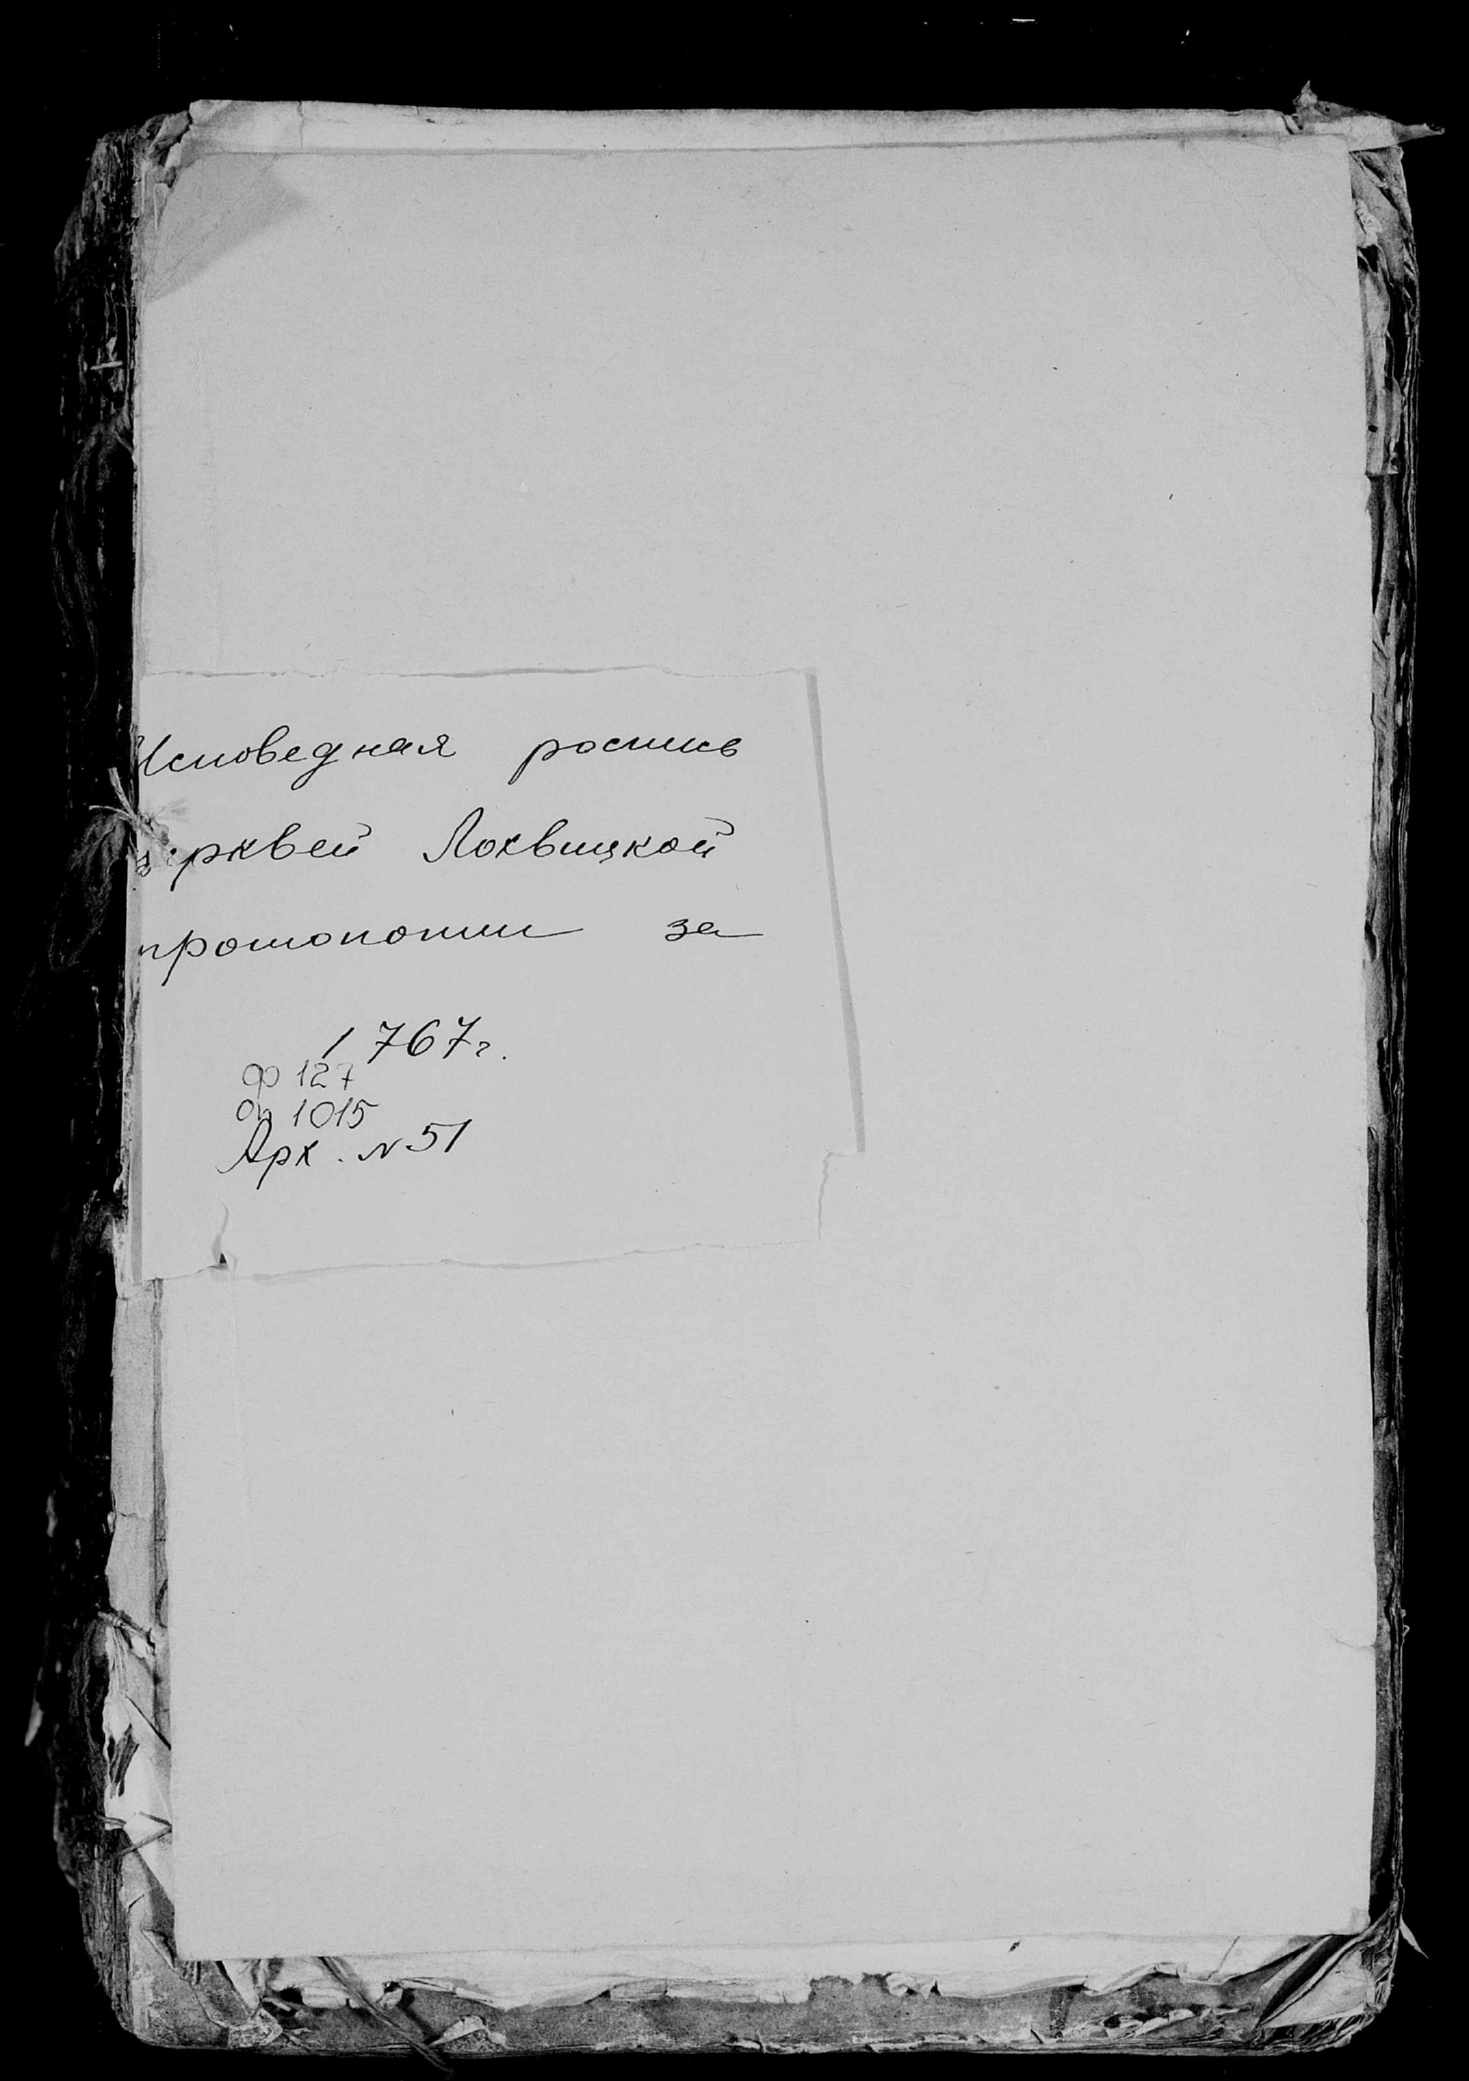 Исповедная роспись
церквей Лохвицкой
протопопии за
1767г.
Ф 127
Оп 1015
Арх. №51